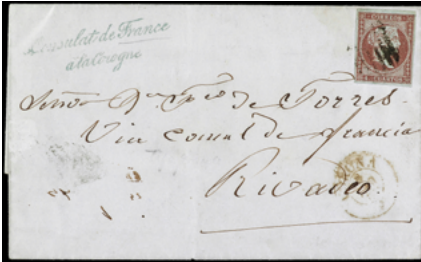 Consulat de France
a la Corogne
CORREOS
Señor Dn de Torres.
Vice consul de francia
Rivadeo.